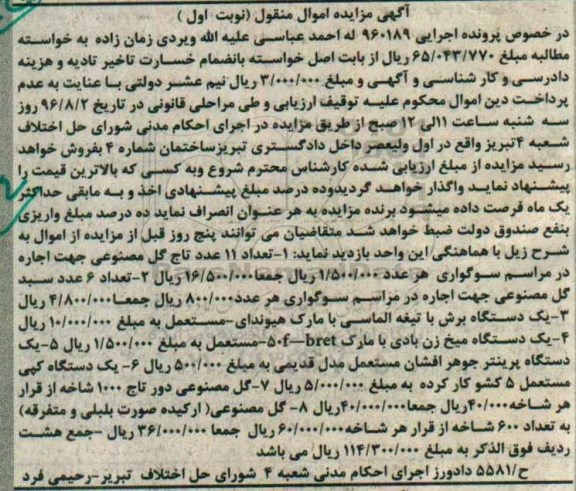 آگهی مزایده اموال منقول (نوبت اول )
در خصوص پرونده اجرایی ۹۶۰۱۸۹ له احمد عباسی علیه الله ویردی زمان زاده به خواسته
مطالبه مبلغ ۶۵/۰۴۳/۷۷۰ ریال از بابت اصل خواسته بانضمام خسارت تاخیر تادیه و هزینه
دادرسی و کار شناسی و آگهی و مبلغ ۳/۰۰۰/۰۰۰ ریال نیم عشر دولتی با عنایت به عدم
پرداخت دین اموال محکوم علیه توقیف ارزیابی و طی مراحلی قانونی در تاریخ ۹۶/۸/۲ روز
سه شنبه ساعت ۱۱الی ۱۲ صبح از طریق مزایده در اجرای احکام مدنی شورای حل اختلاف
شعبه ۴تبریز واقع در اول ولیعصر داخل دادگستری تبریزساختمان شماره ۴ بفروش خواهد
رسید مزایده از مبلغ ارزیابی شده کارشناس محترم شروع وبه کسی که بالاترین قیمت را
پیشنهاد نماید واگذار خواهد گردیدوده درصد مبلغ پیشنهادی اخذ و به مابقی حداکثر
یک ماه فرصت داده میشود برنده مزایده به هر عنوان انصراف نماید ده درصد مبلغ واریزی
بنفع صندوق دولت ضبط خواهد شد متقاضیان می توانند پنج روز قبل از مزایده از اموال به
شرح زیل با هماهنگی این واحد بازدید نماید: ۱-تعداد ۱۱ عدد تاج گل مصنوعی جهت اجاره
در مراسم سوگواری هر عدد ۱/۵۰۰/۰۰۰ ریال جمعا ۱۶/۵۰۰/۰۰۰ ریال ۲-تعداد ۶ عدد سبد
گل مصنوعی جهت اجاره در مراسم سوگواری هر عدد ۸۰۰/۰۰۰ ریال جمعا ۴/۸۰۰/۰۰۰ ریال
۳-یک دستگاه برش با تیغه الماسی با مارک هیوندای-مستعمل به مبلغ ۱۰/۰۰۰/۰۰۰ ریال
۴-یک دستگاه میخ زن بادی با مارک 50f—bret-مستعمل به مبلغ ۱/۵۰۰/۰۰۰ ریال ۵-یک
دستگاه پرینتر جوهر افشان مستعمل مدل قدیمی به مبلغ ۵۰۰/۰۰۰ ریال ۶- یک دستگاه کپی
مستعمل ۵ کشو کار کرده به مبلغ ۵/۰۰۰/۰۰۰ ریال ۷-گل مصنوعی دور تاج ۱۰۰۰ شاخه از قرار
هر شاخه ۴۰/۰۰۰ریال جمعا ۴۰/۰۰۰/۰۰۰ریال ۸- گل مصنوعی( ارکیده صورت بلبلی و متفرقه)
به تعداد ۶۰۰ شاخه از قرار هر شاخه ۶۰/۰۰۰/۰۰۰ریال جمعا ۳۶/۰۰۰/۰۰۰ ریال -جمع هشت
ردیف فوق الذکر به مبلغ ۱۱۴/۳۰۰/۰۰۰ ریال می باشد
ح/۵۵۸۱ دادورز اجرای احکام مدنی شعبه ۴ شورای حل اختلاف تبریز-رحیمی فرد